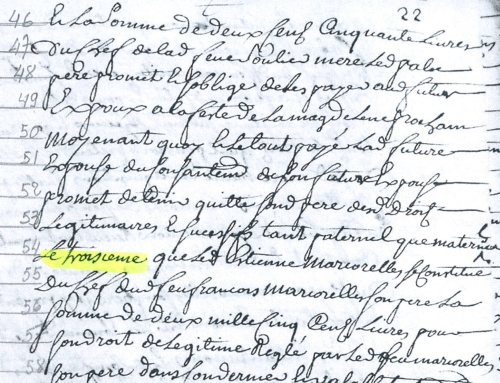 22
46 et La Somme de deux cens Cinquante Livres
47 Du chef de lad feue Soulie mere Led
48 pere promet et soblige de Les payer aud futur
49 Expoux a la feste de La magdelene prochain
50 moyenant quoy et Le tout payé Lad future
51 Expouse du Consantemt de son futur Expoux
52 promet de tenir quitte sond pere desd droits
53 Legitimaires et sucessifs tant paternel que maternel
54 Le troisieme que Led Estienne Mariorelles se Constitue
55 Du chef dud feu francois Mariorelles son pere La
56 somme de deux mille Cinq Cens Livres pour
57 son droit de Legitime Reglé par Led feu mariorelles
58 son pere dans son dernier